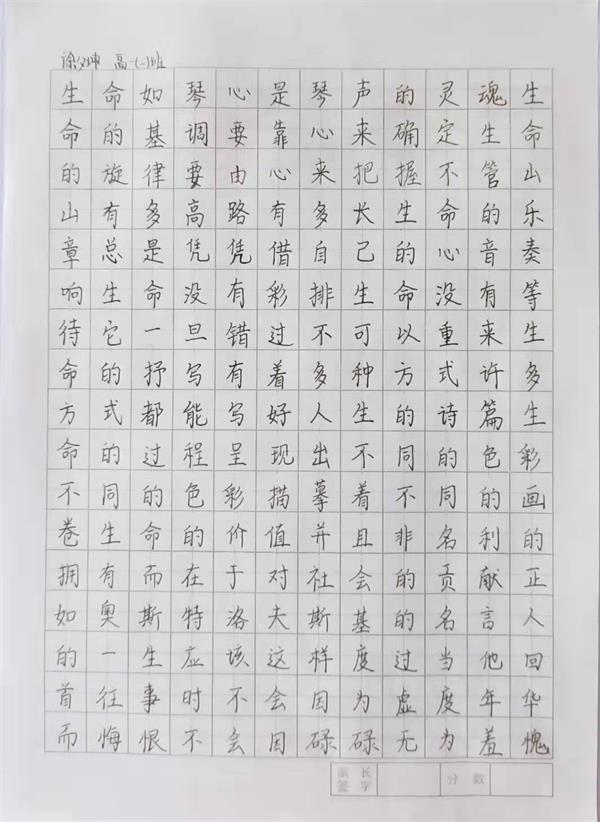 徐义坤 高一(一)班
生命如琴心是琴声的灵魂生
命的基调要靠心来确定生命
的旋律要由心来把握不管山
山有多高路有多长生命的乐
章总是凭凭借自己的心音奏
响生命没有彩排生命没有等
待它一旦错过不可以重来生
命的抒写有着多种方式许多
方式都能写好人生的诗篇生
命的过程呈现出不同的色彩
不同的色彩描摹着不同的画
卷生命的价值并且非名利的
拥有而在于对社会的贡献正
如奥斯特洛夫斯基的名言人
的一生应该这样度过当他回
首往事时不会因为虚度年华
而悔恨不会因碌碌无为羞愧
家长签字 分数